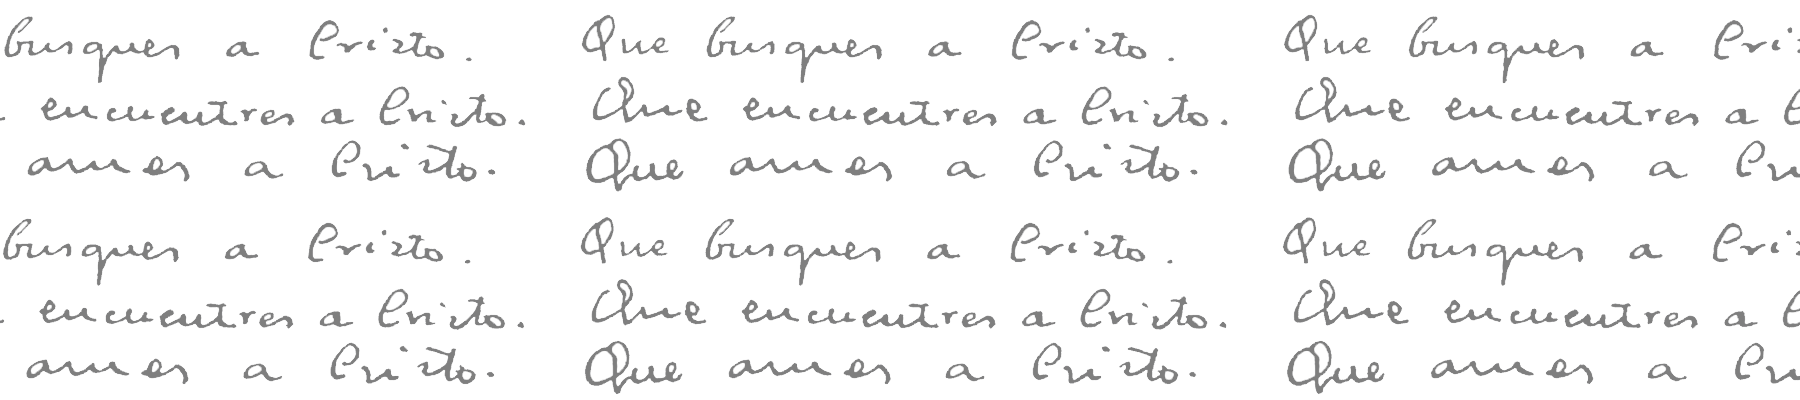 busques a Cristo. Que busques a Cristo. Que busques a Cri
encuentres a Cristo. Que encuentres a Cristo. Que encuentres a
ames a Cristo. Que ames a Cristo. Que ames a Cri
busques a Cristo. Que busques a Cristo. Que busques a Cri
encuentres a Cristo. Que encuentres a Cristo. Que encuentres a
ames a Cristo. Que ames a Cristo. Que ames a Cri